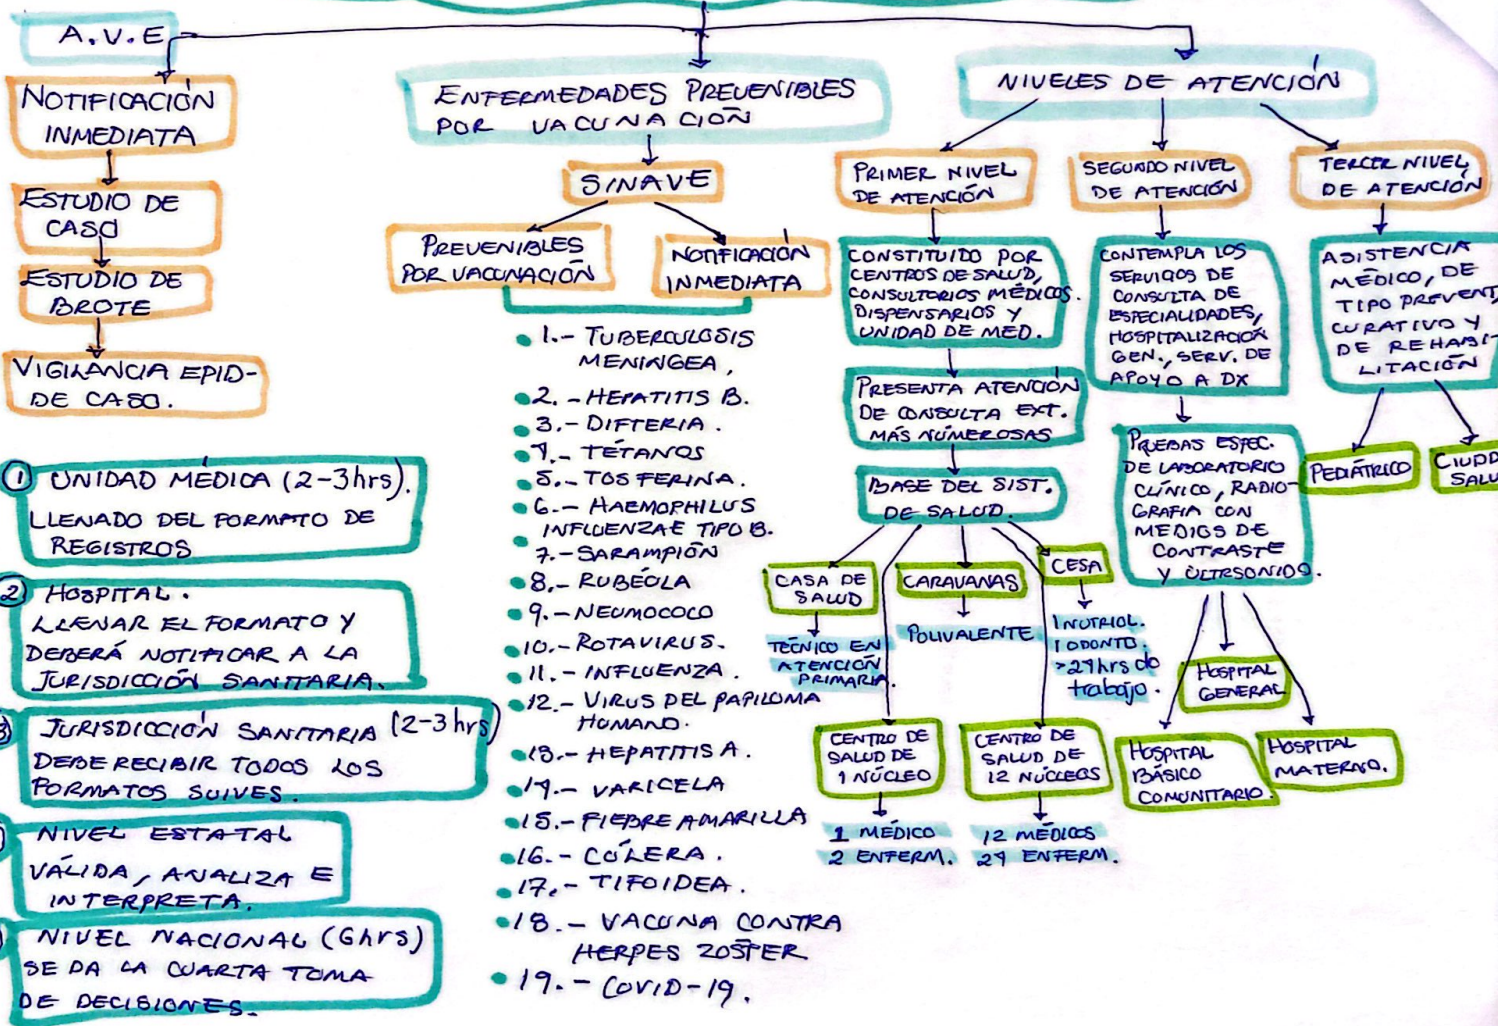 A.V.E
NOTIFICACIÓN
INMEDIATA
ESTUDIO DE
CASO
ESTUDIO DE
BROTE
VIGILANCIA EPID-
DE CASO.
1 UNIDAD MÉDICA (2-3hrs).
LLENADO DEL FORMATO DE
REGISTROS
2 HOSPITAL.
LLENAR EL FORMATO Y
DEBERÁ NOTIFICAR A LA
JURISDICCIÓN SANITARIA.
3 JURISDICCIÓN SANITARIA (2-3hrs)
DEBE RECIBIR TODOS LOS
FORMATOS SUIVES.
NIVEL ESTATAL
VÁLIDA, ANALIZA E
INTERPRETA.
NIVEL NACIONAL (6hrs)
SE DA LA CUARTA TOMA
DE DECISIONES.
ENFERMEDADES PREVENIBLES
POR VACUNACIÓN
SINAVE
PREVENIBLES
POR VACUNACIÓN
NOTIFICACIÓN
INMEDIATA
1.- TUBERCULOSIS
MENINGEA,
2.- HEPATITIS B.
3.- DIFTERIA.
4.- TÉTANOS
5.- TOSFERINA.
6.- HAEMOPHILUS
INFLUENZAE TIPO B.
7.- SARAMPIÓN
8.- RUBÉOLA
9.- NEUMOCOCO
10.- ROTAVIRUS.
11.- INFLUENZA.
12.- VIRUS DEL PAPILOMA
HUMANO.
13.- HEPATITIS A.
14.- VARICELA
15.- FIEBRE AMARILLA
16.- CÓLERA.
17.- TIFOIDEA.
18.- VACUNA CONTRA
HERPES ZOSTER
19.- COVID-19.
NIVELES DE ATENCIÓN
PRIMER NIVEL
DE ATENCIÓN
CONSTITUIDO POR
CENTROS DE SALUD,
CONSULTORIOS MÉDICOS.
DISPENSARIOS Y
UNIDAD DE MED.
PRESENTA ATENCIÓN
DE CONSULTA EXT.
MÁS NÚMEROSAS
BASE DEL SIST.
DE SALUD.
CASA DE
SALUD
TÉCNICO EN
ATENCIÓN
PRIMARIA.
CARAVANAS
POLIVALENTE
CESA
1 NUTRIOL.
1 ODONTO.
>24hrs do
trabajo.
CENTRO DE
SALUD DE
1 NÚCLEO
1 MÉDICO
2 ENFERM.
CENTRO DE
SALUD DE
12 NÚCLEOS
12 MÉDICOS
24 ENFERM.
SEGUNDO NIVEL
DE ATENCIÓN
CONTEMPLA LOS
SERVICIOS DE
CONSULTA DE
ESPECIALIDADES,
HOSPITALIZACIÓN
GEN., SERV. DE
APOYO A DX
PRUEBAS ESPEC.
DE LABORATORIO
CLÍNICO, RADIO-
GRAFIA CON
MEDIOS DE
CONTRASTE
Y ULTRSONIDO.
HOSPITAL
BÁSICO
COMUNITARIO.
HOSPITAL
GENERAL
HOSPITAL
MATERNO.
TERCER NIVEL
DE ATENCIÓN
ASISTENCIA
MÉDICO, DE
TIPO PREVENT,
CURATIVO Y
DE REHABI-
LITACIÓN
PEDIÁTRICO
SALU